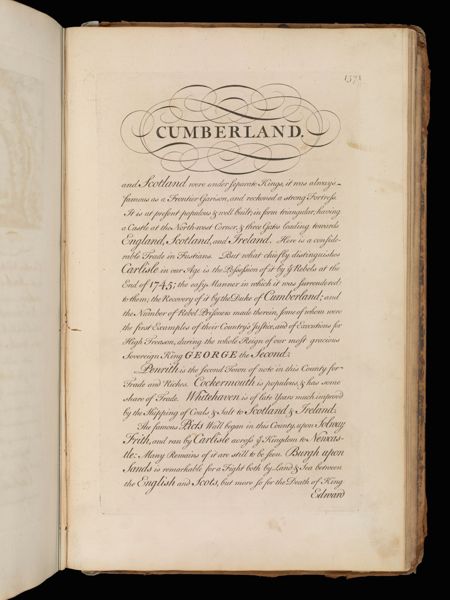 157
CUMBERLAND.
and Scotland were under separate Kings, it was always
famous as a Frontier Garison, and reckoned a strong Fortress.
It is at present populous & well built; in form triangular, having
a Castle at the North-west Corner, & three Gates leading towards
England, Scotland, and Ireland. Here is a conside-
rable Trade in Fustians. But what chiefly distinguishes
Carlisle in our Age is the Possession of it by ye Rebels at the
End of 1745; the easy Manner in which it was surrendered
to them; the Recovery of it by the Duke of Cumberland; and
the Number of Rebel Prisoners made therein, some of whom were
the first Examples of their Country's Justice, and of Executions for
High Treason, during the whole Reign of our most gracious
Sovereign King GEORGE the Second.
Penrith is the second Town of note in this County for
Trade and Riches. Cockermouth is populous, & has some
share of Trade. Whitehaven is of late Years much improved
by the Shipping of Coals & Salt to Scotland & Ireland.
The famous Picts Wall began in this County, upon Solway
Frith, and ran by Carlisle across ye Kingdom to Newcas-
tle: Many Remains of it are still to be seen. Burgh upon
Sands is remarkable for a Fight both by Land & Sea between
the English and Scots, but more so for the Death of King
Edward